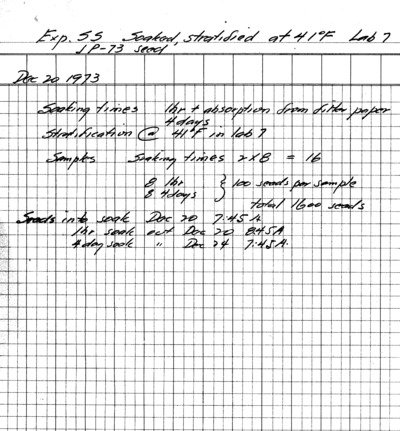 Exp. SS Soaked, stratified at 41°F Lab 7
JP-73 seed
Dec 20 1973
Soaking times 1hr + absorption from filter paper
4 days
Stratification @ 41°F in lab 7
Samples Soaking times 2 x 8 = 16
8 1hr } 100 seeds per sample
8 4days
total 1600 seeds
Seeds into soak Dec 20 7:45 A
1hr soak out Dec 20 8:45A
4 day soak " Dec 24 7:45A.